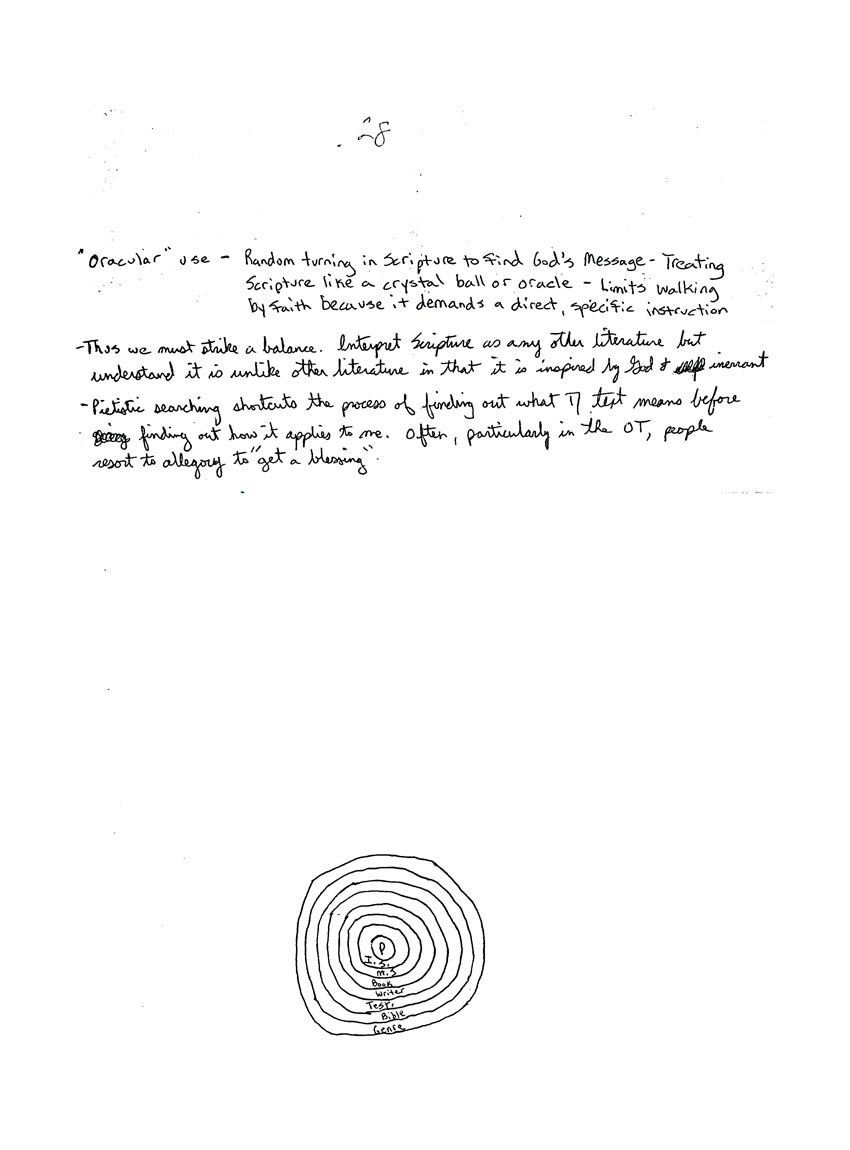 "Oracular" use - Random turning in Scripture to find God's Message - Treating
Scripture like a crystal ball or oracle - Limits walking
by faith because it demands a direct, specific instruction
-Thus we must strike a balance. Interpret Scripture as any other literature but
understand it is unlike other literature in that it is inspired by God & inerrant
-Pietistic searching shortcuts the process of finding out what text means before
finding out how it applies to me. Often, particularly in the OT, people
resort to allegory to "get a blessing".
P
I.S.
M.S
Book
Writer
Test.
Bible
Genre